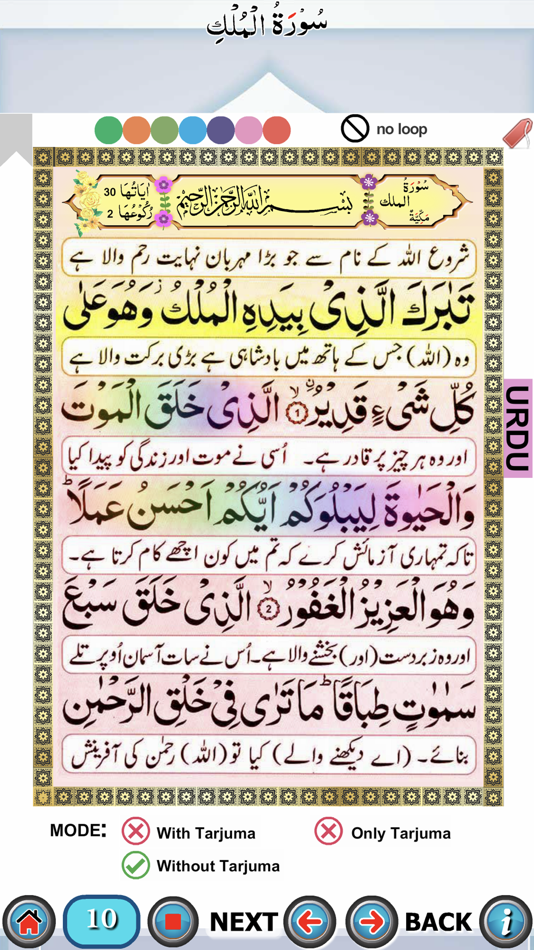 سُوْرَةُ الْمُلْكِ
no loop
سُوْرَةُ
الملك
مَكِّيَّةٌ
بِسْمِ اللّٰهِ الرَّحْمٰنِ الرَّحِيْمِ
اٰيَاتُهَا 30
رُكُوْعُهَا 2
شروع اللہ کے نام سے جو بڑا مہربان نہایت رحم والا ہے
تَبٰرَكَ الَّذِىْ بِيَدِهِ الْمُلْكُ ز وَهُوَ عَلٰى
وہ (اللہ) جس کے ہاتھ میں بادشاہی ہے بڑی برکت والا ہے
كُلِّ شَىْءٍ قَدِيْرُ ۙ ﴿1﴾ الَّذِىْ خَلَقَ الْمَوْتَ
اور وہ ہر چیز پر قادر ہے۔ اُسی نے موت اور زندگی کو پیدا کیا
وَالْحَيٰوةَ لِيَبْلُوَكُمْ اَيُّكُمْ اَحْسَنُ عَمَلًا ؕ
تاکہ تمہاری آزمائش کرے کہ تم میں کون اچھے کام کرتا ہے۔
وَهُوَ الْعَزِيْزُ الْغَفُوْرُ ۙ ﴿2﴾ الَّذِىْ خَلَقَ سَبْعَ
اور وہ زبردست (اور) بخشنے والا ہے۔ اُس نے سات آسمان اُوپر تلے
سَمٰوٰتٍ طِبَاقًا ؕ مَا تَرٰى فِىْ خَلْقِ الرَّحْمٰنِ
بنائے۔ (اے دیکھنے والے) کیا تو (اللہ) رحمٰن کی آفرینش
URDU
MODE: With Tarjuma Only Tarjuma
Without Tarjuma
10 NEXT BACK i